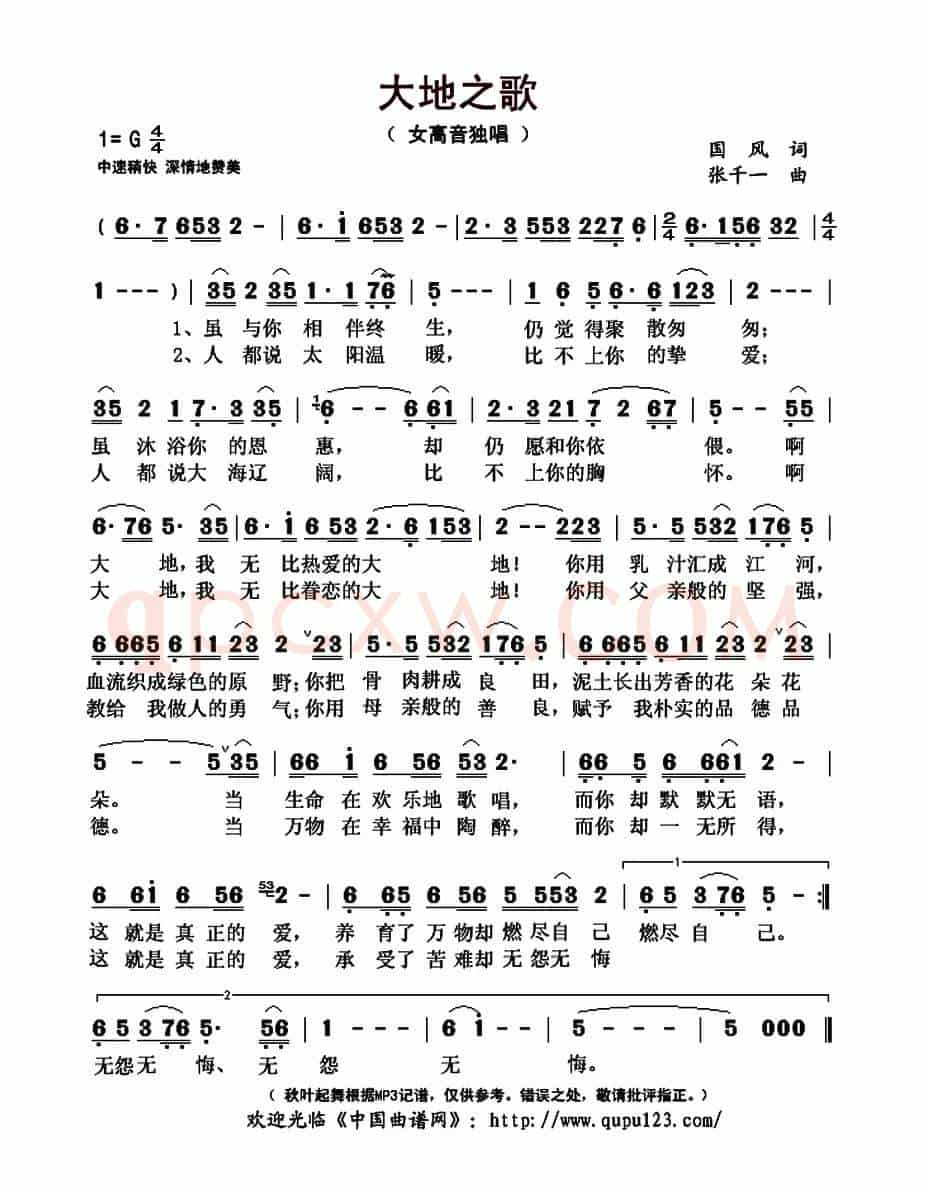 大地之歌
（ 女高音独唱 ）
1= G 4/4
中速稍快 深情地赞美
国 风 词
张千一 曲
( 6· 7 653 2 - | 6· i 653 2 - | 2· 3 553 227 6 | 2/4 6· 156 32 | 4/4
1 - - - ) | 35 2 35 1· 1 76 | 5 - - - | 1 6 5 6· 6 123 | 2 - - - |
1、虽 与你 相 伴终 生， 仍觉 得聚 散匆 匆；
2、人 都说 太 阳温 暖， 比不 上你 的挚 爱；
35 2 1 7· 3 35 | 1 6 - - 6 61 | 2· 3 21 7 2 67 | 5 - - 55 |
虽 沐 浴你 的恩 惠， 却 仍 愿和你依 偎。 啊
人 都 说大 海辽 阔， 比 不 上你的胸 怀。 啊
6· 76 5· 35 | 6· i 6 53 2· 6 153 | 2 - - 223 | 5· 5 532 176 5 |
大 地，我 无 比热爱的大 地！ 你用 乳 汁汇成 江 河，
大 地，我 无 比眷恋的大 地！ 你用 父 亲般的 坚 强，
6 665 6 11 23 2 ∨ 23 | 5· 5 532 176 5 | 6 665 6 11 23 2 ∨ 23 |
血流织成绿色的原 野；你把 骨 肉耕成 良 田，泥土长出芳香的花 朵 花
教给 我做人的勇 气；你用 母 亲般的 善 良，赋予 我朴实的品 德 品
5 - - 5 ∨ 35 | 66 i 6 56 53 2· | 66 5 6 661 2 - |
朵。 当 生命 在 欢 乐地 歌 唱， 而你 却 默 默无 语，
德。 当 万物 在 幸 福中 陶 醉， 而你 却 一 无所 得，
6 6i 6 56 53 2 - | 6 65 6 56 5 553 2 | 1 6 5 3 76 5 - :||
这 就是 真 正的 爱， 养 育了 万 物却 燃 尽自 己 燃尽 自 己。
这 就是 真 正的 爱， 承 受了 苦 难却 无 怨无 悔
2
6 5 3 76 5· 56 | 1 - - - | 6 i - - | 5 - - - | 5 000 ||
无怨无 悔、 无 怨 无 悔。
（ 秋叶起舞根据MP3记谱，仅供参考。错误之处，敬请批评指正。）
欢迎光临《中国曲谱网》：http://www.qupu123.com/
qpcxw.COM